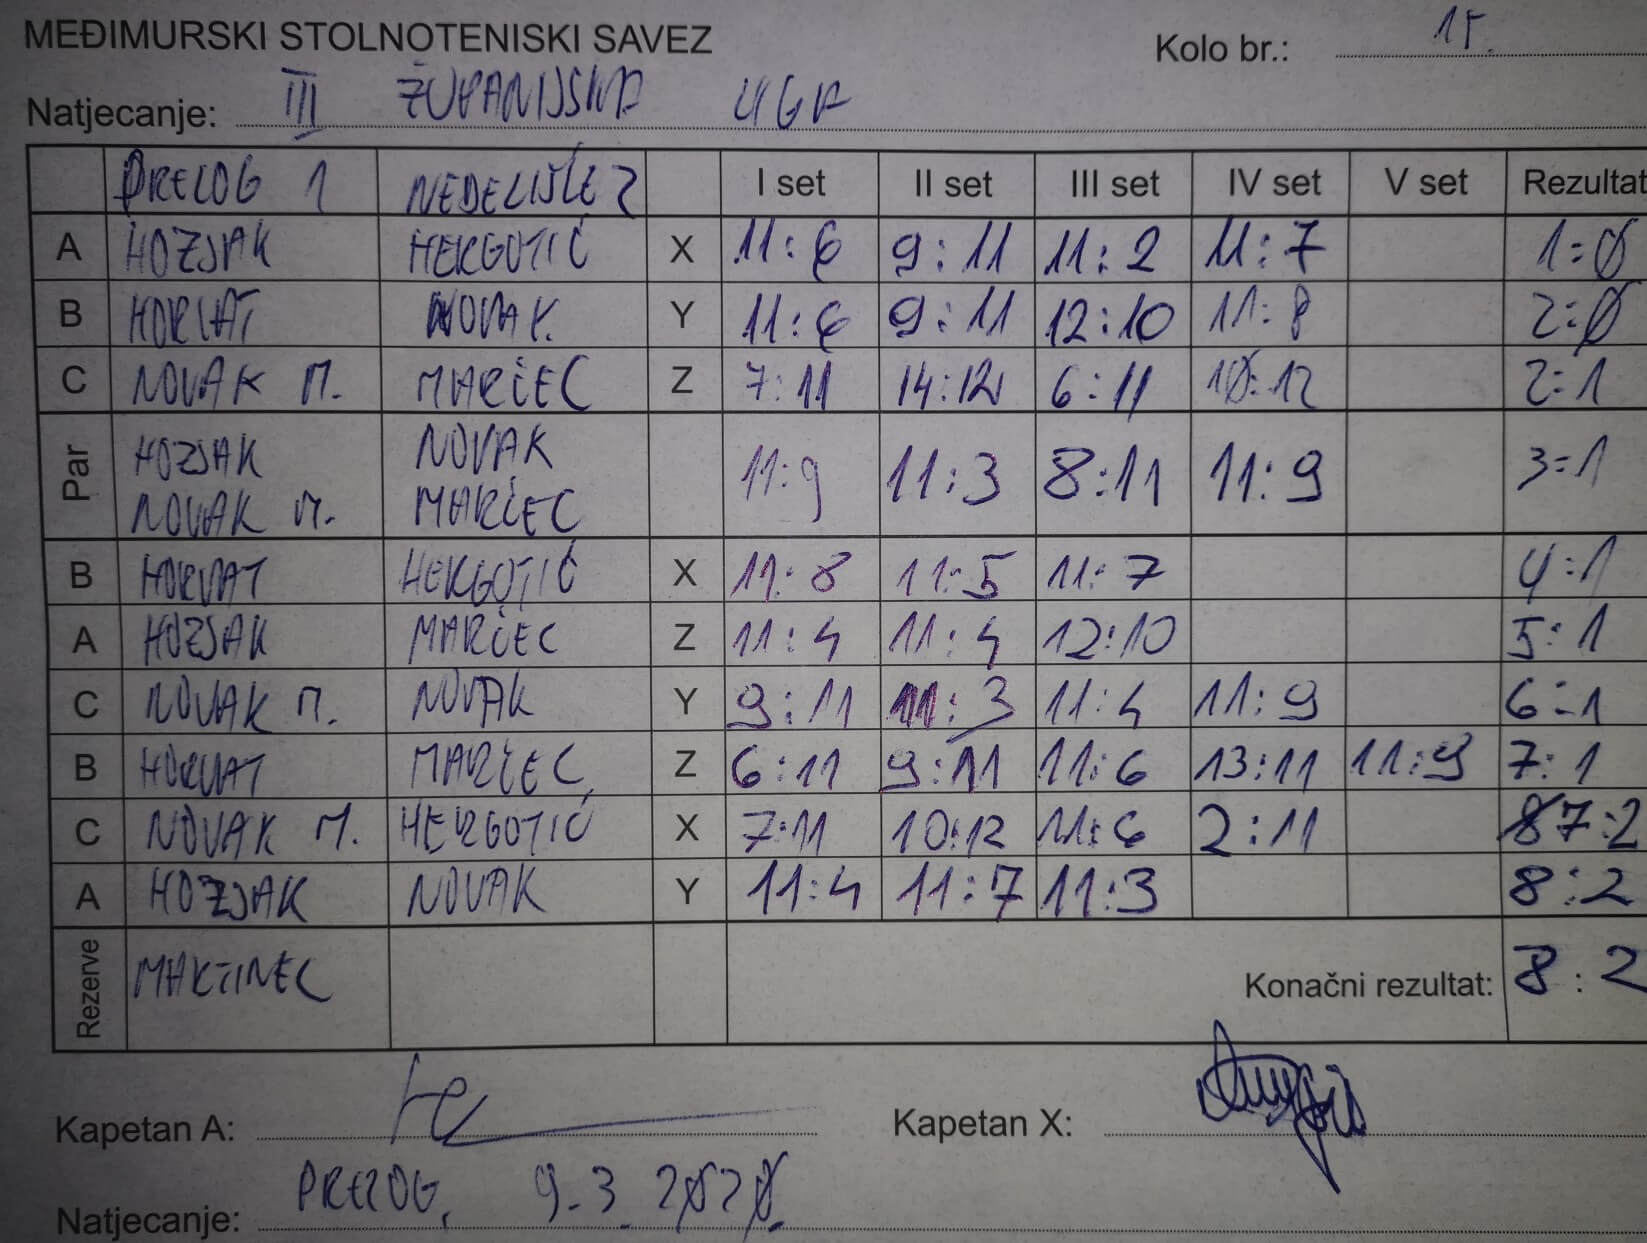 MEĐIMURSKI STOLNOTENISKI SAVEZ Kolo br.: 15.
Natjecanje: III ŽUPANIJSKA LIGA
PRELOG 1 NEDELIŠĆE 2 I set II set III set IV set V set Rezultat
A HOZJAK HERGOTIĆ X 11:6 9:11 11:2 11:7 1:0
B HORVAT NOVAK Y 11:6 9:11 12:10 11:8 2:0
C NOVAK M. MARČEC Z 7:11 14:12 6:11 10:12 2:1
Par HOZJAK NOVAK 11:9 11:3 8:11 11:9 3:1
NOVAK M. MARČEC
B HORVAT HERGOTIĆ X 11:8 11:5 11:7 4:1
A HOZJAK MARČEC Z 11:4 11:4 12:10 5:1
C NOVAK M. NOVAK Y 9:11 11:3 11:4 11:9 6:1
B HORVAT MARČEC Z 6:11 9:11 11:6 13:11 11:9 7:1
C NOVAK M. HERGOTIĆ X 7:11 10:12 11:6 2:11 7:2
A HOZJAK NOVAK Y 11:4 11:7 11:3 8:2
Rezerve MARTINEC Konačni rezultat: 8:2
Kapetan A: Kapetan X:
Natjecanje: PRELOG, 9.3.2020.